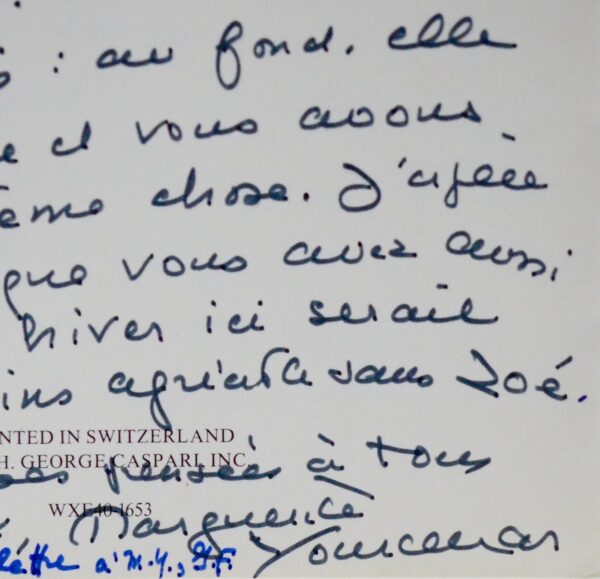 : au fond, elle
et vous avons
ême chose. J'espère
que vous avez aussi
hiver ici serait
ins agréable sans Zoé.
NTED IN SWITZERLAND
H. GEORGE CASPARI, INC.
es pensées à tous
WXE40-1653
Marguerite
Yourcenar
lettre à M.Y., J.F.